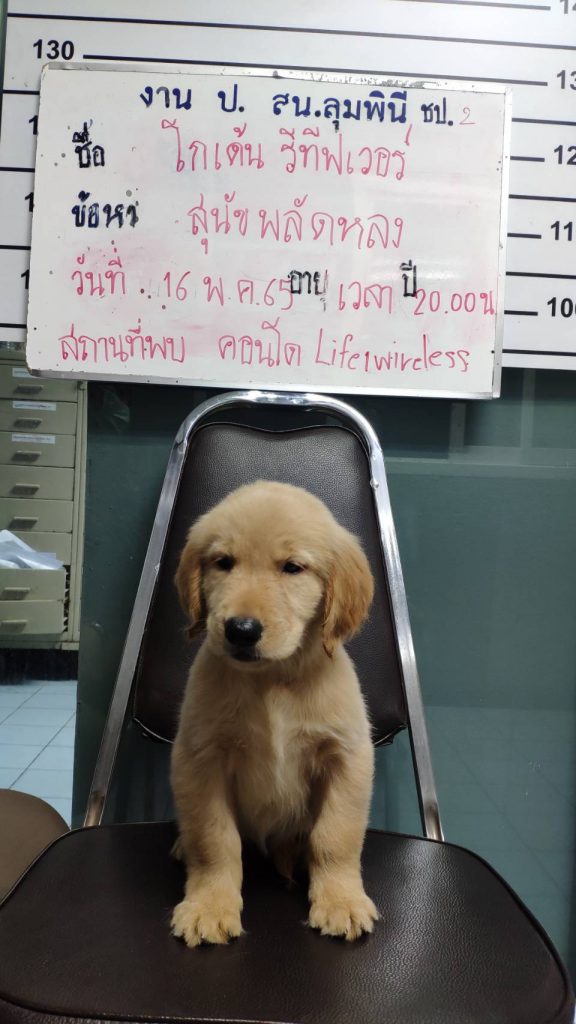 130
งาน ป. สน.ลุมพินี ชป. 2
ชื่อ โกเด้น รีทีฟเวอร์
ข้อหา สุนัข พลัดหลง
วันที่ . . 16 พ.ค.65 อายุ เวลา ปี 20.00น
สถานที่พบ คอนโด Life1wireless
100